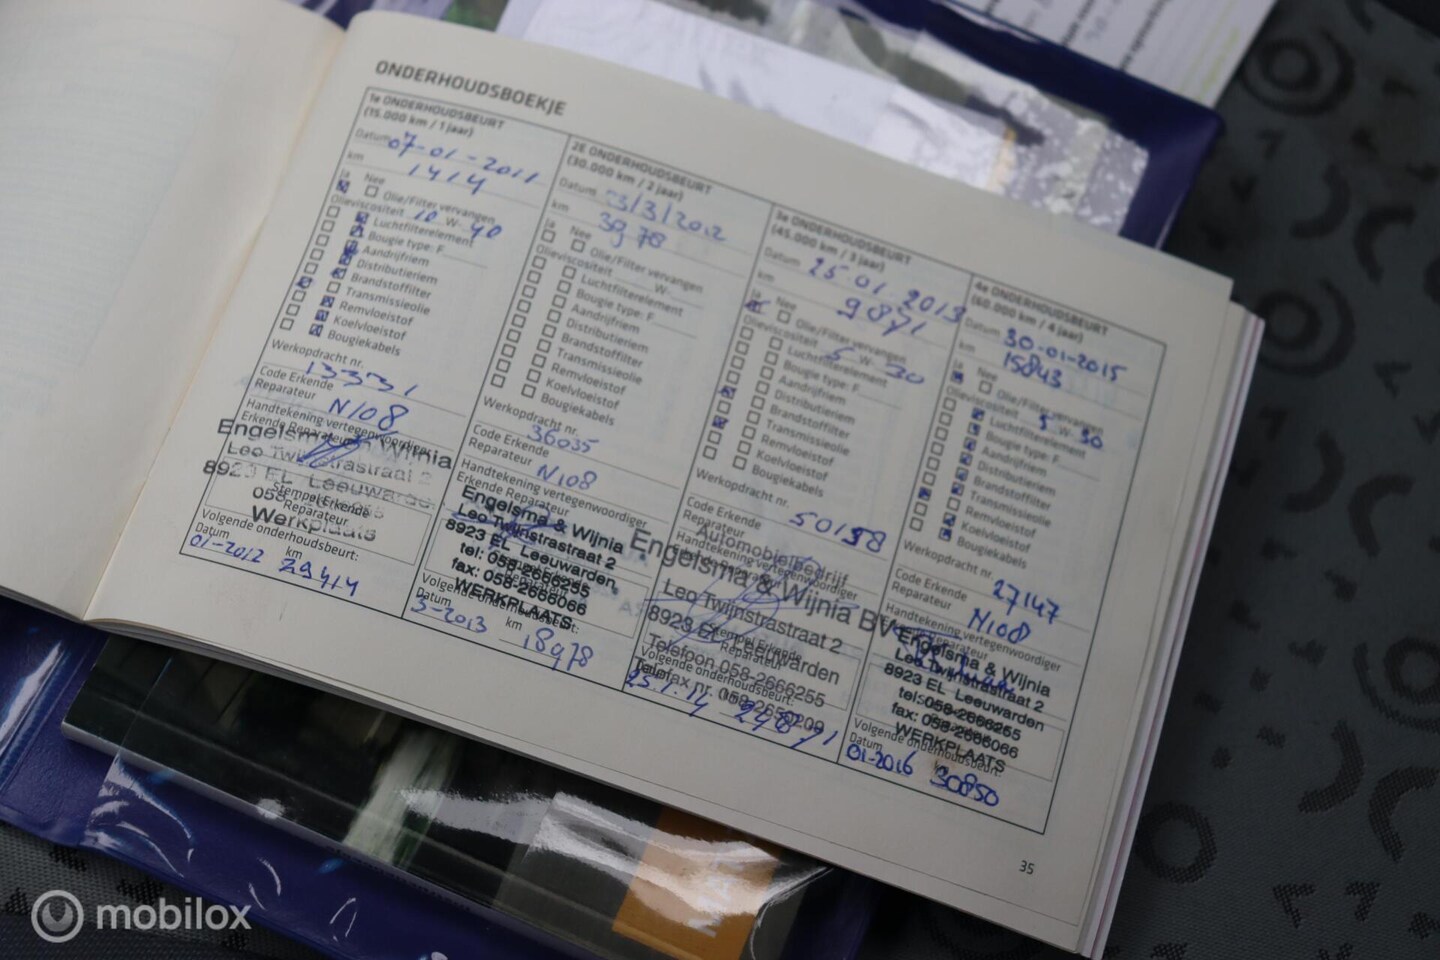 ONDERHOUDSBOEKJE
1e ONDERHOUDSBEURT
(15.000 km / 1 jaar)
Datum 07-01-2011
km 1414
Ja Nee
Olie/Filter vervangen
Olieviscositeit 10 W- 40
Luchtfilterelement
Bougie type: F
Aandrijfriem
Distributieriem
Brandstoffilter
Transmissieolie
Remvloeistof
Koelvloeistof
Bougiekabels
Werkopdracht nr.
13331
Code Erkende
Reparateur N108
Handtekening vertegenwoordiger
Erkende Reparateur
Engelsma & Wijnia
Leo Twijnstrastraat 2
8923 EL Leeuwarden
Stempel Erkende
Reparateur
Werkplaats
Volgende onderhoudsbeurt:
Datum km
01-2012
2E ONDERHOUDSBEURT
(30.000 km / 2 jaar)
Datum 3/3/2012
km 3978
Ja Nee
Olie/Filter vervangen
Olieviscositeit W-
Luchtfilterelement
Bougie type: F
Aandrijfriem
Distributieriem
Brandstoffilter
Transmissieolie
Remvloeistof
Koelvloeistof
Bougiekabels
Werkopdracht nr.
36035
Code Erkende
Reparateur N108
Handtekening vertegenwoordiger
Erkende Reparateur
Engelsma & Wijnia
Leo Twijnstrastraat 2
8923 EL Leeuwarden
tel: 058-2666255
fax: 058-2666066
WERKPLAATS
Volgende onderhoudsbeurt:
Datum km
3-2013 18978
3e ONDERHOUDSBEURT
(45.000 km / 3 jaar)
Datum 25-01-2013
km 9871
Ja Nee
Olie/Filter vervangen
Olieviscositeit 5 W- 30
Luchtfilterelement
Bougie type: F
Aandrijfriem
Distributieriem
Brandstoffilter
Transmissieolie
Remvloeistof
Koelvloeistof
Bougiekabels
Werkopdracht nr.
50158
Code Erkende
Reparateur
Handtekening vertegenwoordiger
Automobielbedrijf
Engelsma & Wijnia BV
Leo Twijnstrastraat 2
8923 EL Leeuwarden
Stempel Erkende
Reparateur
Telefoon 058-2666255
Volgende onderhoudsbeurt:
Telefax nr.
25.1.14 24871
4e ONDERHOUDSBEURT
(60.000 km / 4 jaar)
Datum 30-01-2015
km 15843
Ja Nee
Olie/Filter vervangen
Olieviscositeit 5 W- 30
Luchtfilterelement
Bougie type: F
Aandrijfriem
Distributieriem
Brandstoffilter
Transmissieolie
Remvloeistof
Koelvloeistof
Bougiekabels
Werkopdracht nr.
27147
Code Erkende
Reparateur N108
Handtekening vertegenwoordiger
Engelsma & Wijnia
Leo Twijnstrastraat 2
8923 EL Leeuwarden
tel: 058-2666255
fax: 058-2666066
WERKPLAATS
Volgende onderhoudsbeurt:
Datum
01-2016 30850
35
mobilox